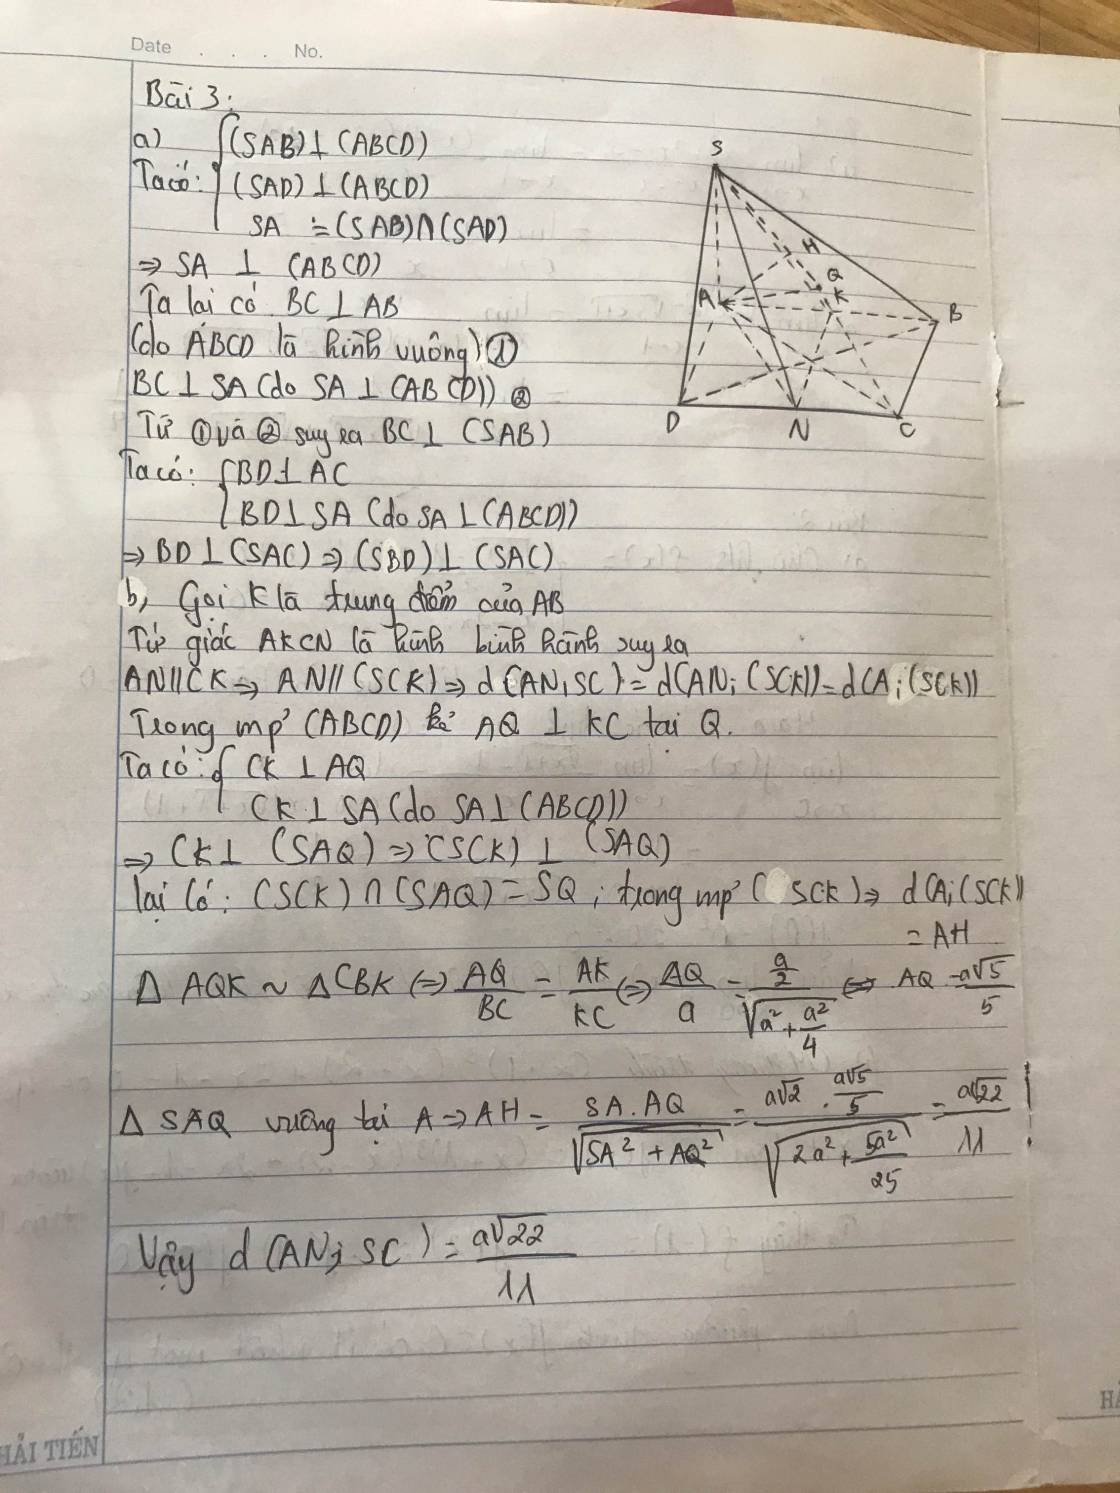 Date . . . No.
Bài 3:
a) {(SAB)⊥(ABCD)
Ta có: (SAD)⊥(ABCD)
SA = (SAB)∩(SAD)
⇒ SA ⊥ (ABCD)
Ta lại có BC⊥AB
(do ABCD là hình vuông) ①
BC⊥SA (do SA⊥(ABCD)) ②
Từ ① và ② suy ra BC⊥(SAB)
Ta có: {BD⊥AC
BD⊥SA (do SA⊥(ABCD))
⇒ BD⊥(SAC) ⇒ (SBD)⊥(SAC)
b, Gọi K là trung điểm của AB
Tứ giác AKCN là hình bình hành suy ra
AN//CK ⇒ AN//(SCK) ⇒ d(AN,SC) = d(AN;(SCK)) = d(A;(SCK))
Trong mp' (ABCD) kẻ AQ ⊥ KC tại Q.
Ta có: { CK ⊥ AQ
CK ⊥ SA (do SA⊥(ABCD))
⇒ CK⊥ (SAQ) ⇒ (SCK) ⊥ (SAQ)
lại có: (SCK) ∩ (SAQ) = SQ; trong mp' (SCK) ⇒ d(A;(SCK))
= AH
Δ AQK ~ ΔCBK ⇔ AQ/BC = AK/KC ⇔ AQ/a = (a/2)/√(a²+a²/4) ⇔ AQ = a√5/5
Δ SAQ vuông tại A ⇒ AH = SA.AQ/√(SA²+AQ²) = (a√2 . a√5/5)/√(2a²+5a²/25) = a√22/11
Vậy d(AN; SC) = a√22/11
S
H
Q
A
K
B
D
N
C
HẢI TIẾN